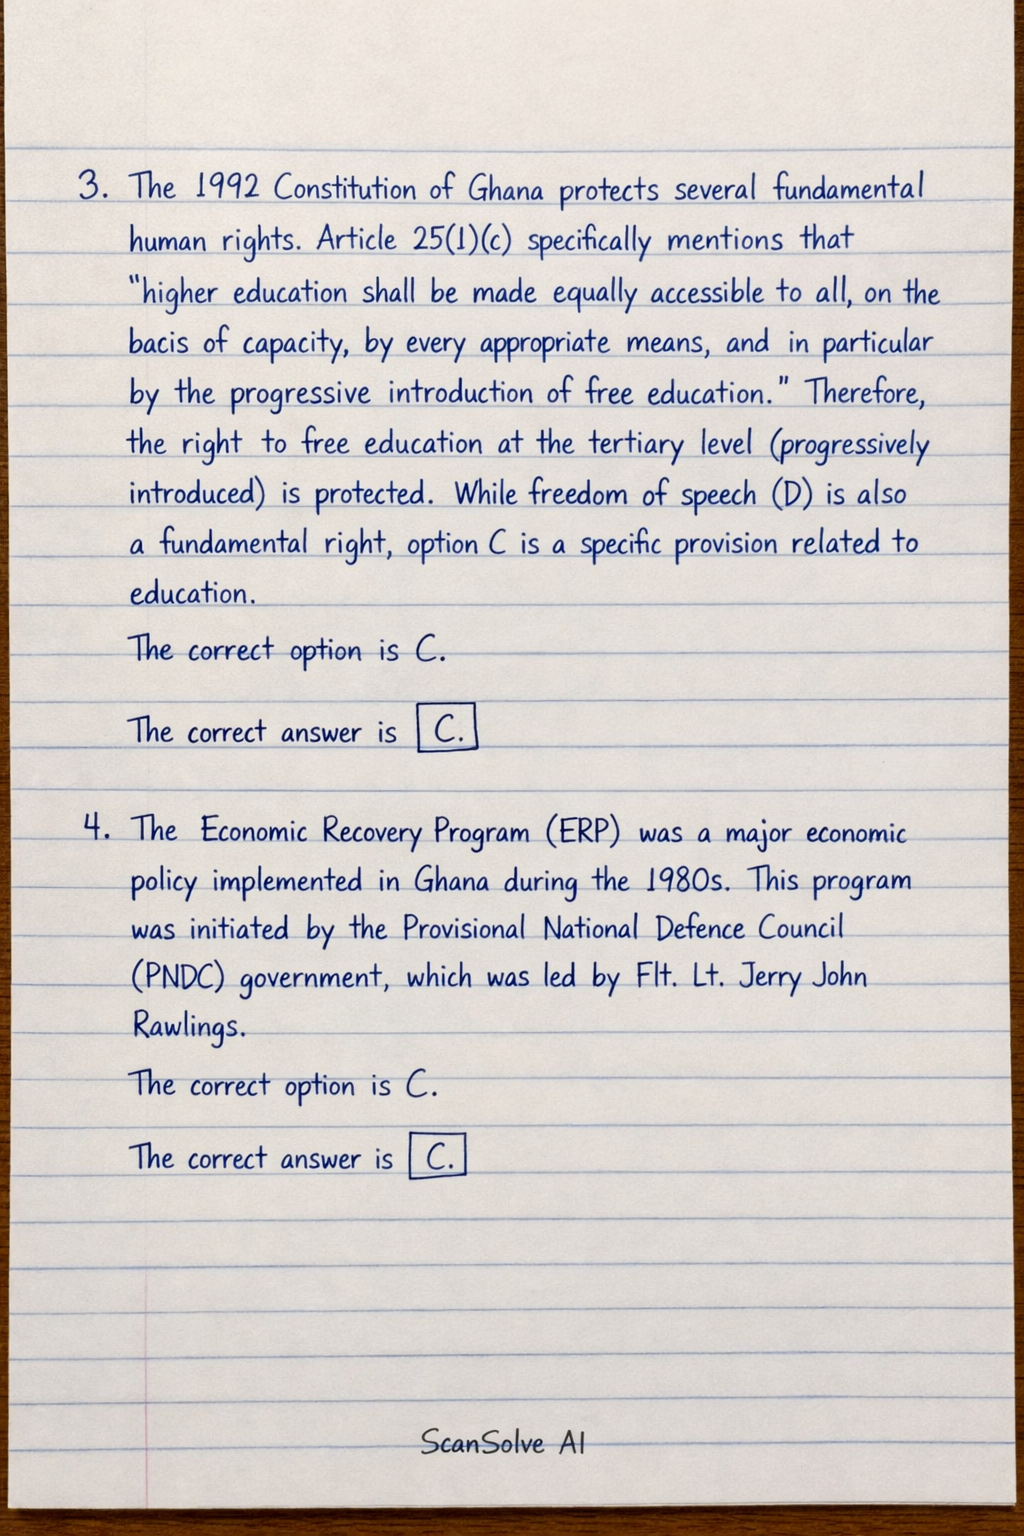 3. The 1992 Constitution of Ghana protects several fundamental
human rights. Article 25(1)(c) specifically mentions that
"higher education shall be made equally accessible to all, on the
bacis of capacity, by every appropriate means, and in particular
by the progressive introduction of free education." Therefore,
the right to free education at the tertiary level (progressively
introduced) is protected. While freedom of speech (D) is also
a fundamental right, option C is a specific provision related to
education.
The correct option is C.
The correct answer is C.
4. The Economic Recovery Program (ERP) was a major economic
policy implemented in Ghana during the 1980s. This program
was initiated by the Provisional National Defence Council
(PNDC) government, which was led by Flt. Lt. Jerry John
Rawlings.
The correct option is C.
The correct answer is C.
ScanSolve AI